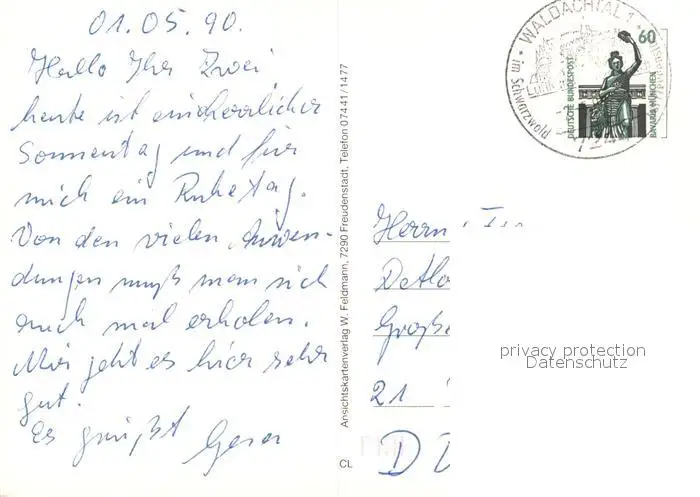 01.05.90.
Hallo Ihr Zwei
heute ist ein herrlicher
Sonnentag und für
mich ein Ruhetag.
Von den vielen Anwen-
dungen muß man sich
auch mal erholen.
Mir geht es hier sehr
gut.
Es grüßt
Ansichtskartenverlag W. Feldmann, 7290 Freudenstadt, Telefon 07441/1477
CL
WALDACHTAL 1
im Schwarzwald
60
DEUTSCHE BUNDESPOST
BAVARIA MÜNCHEN
Herrn
Detlo
Große
21
D
privacy protection
Datenschutz